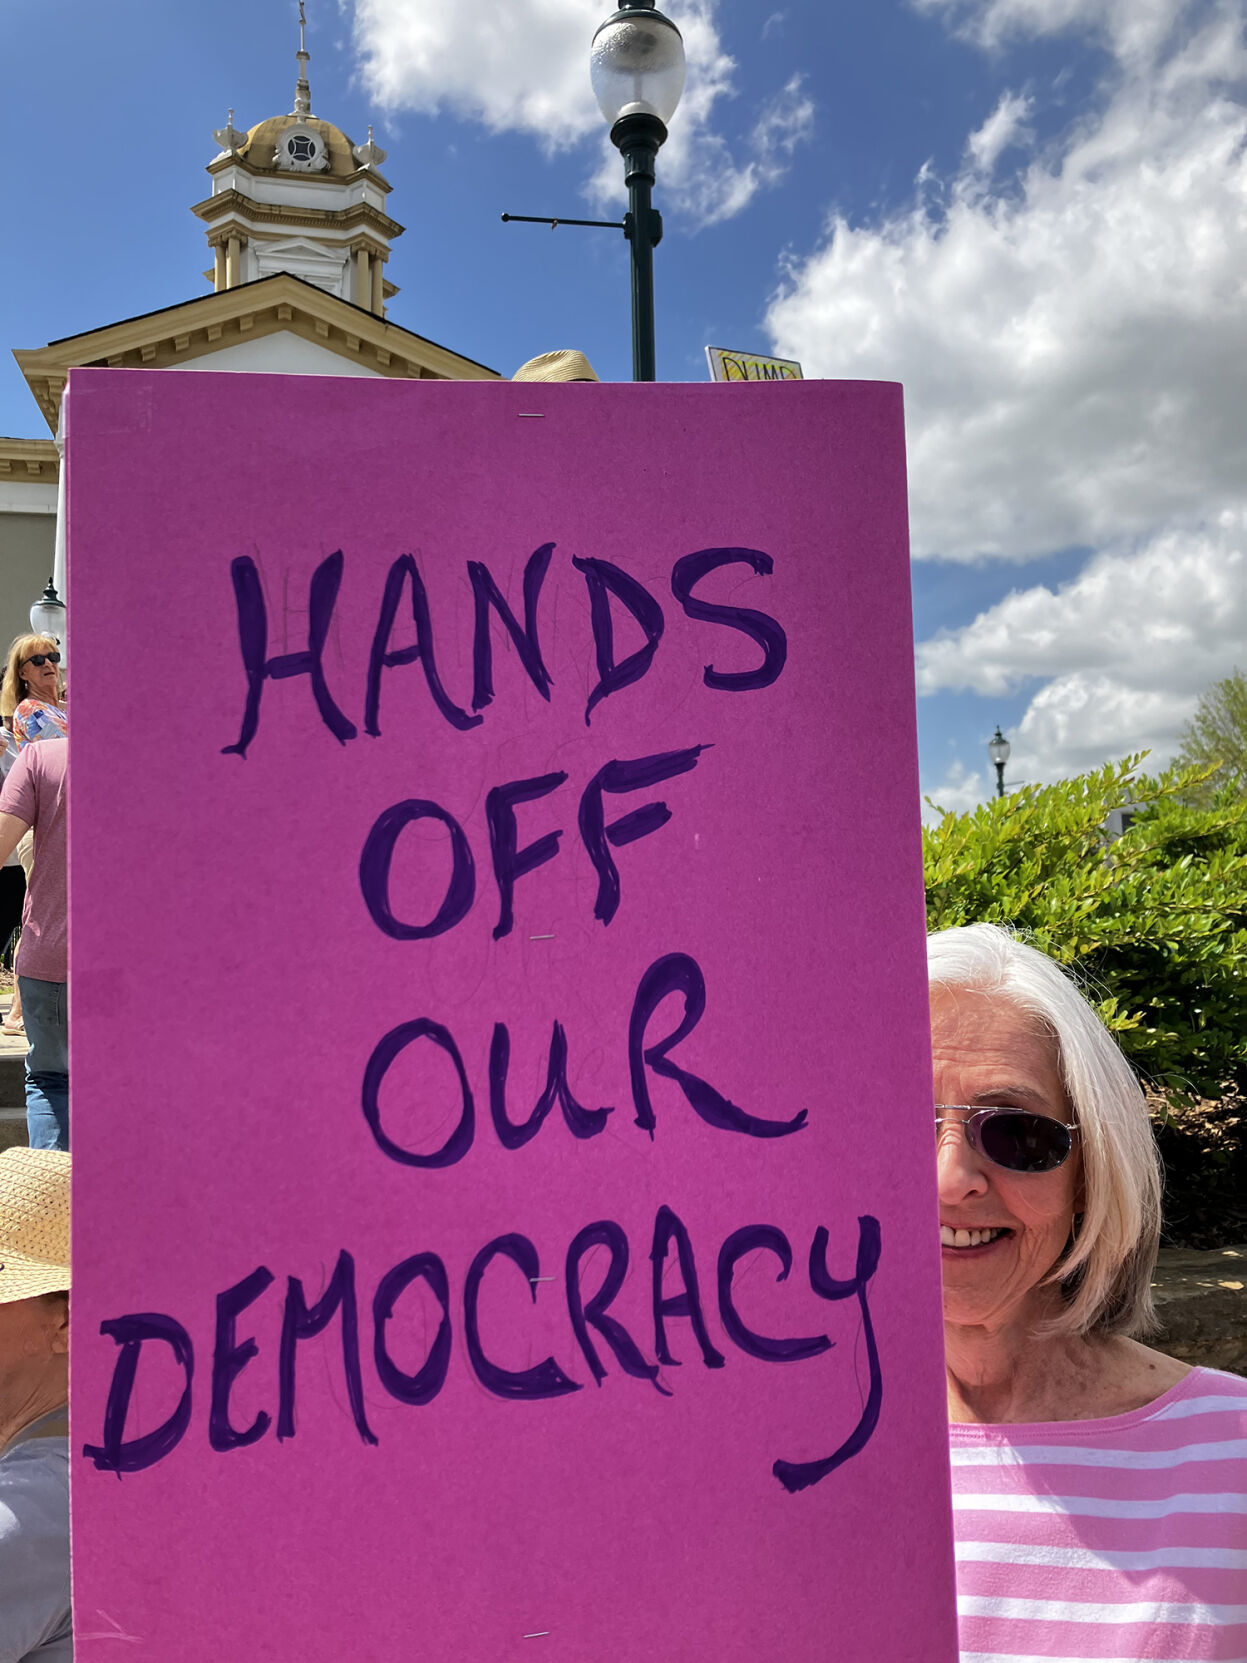 HANDS
OFF
OUR
DEMOCRACY